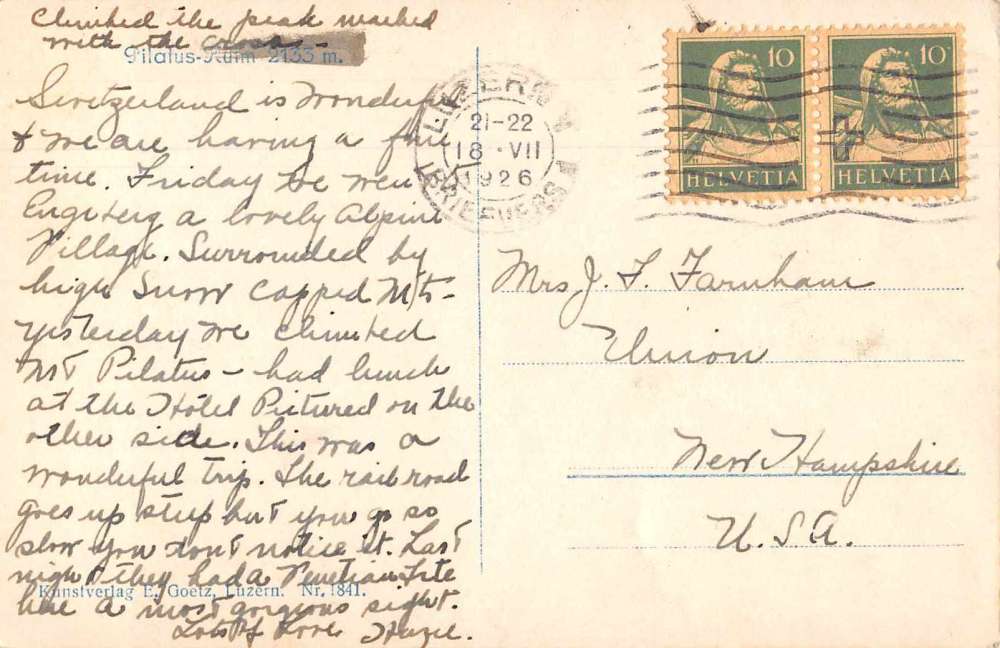 Climbed the peak marked
with the cross -
Pilatus-Kulm 2133 m.
Switzerland is wonderful
& we are having a fine
time. Friday we went
Engelberg a lovely Alpine
Village. Surrounded by
high Snow Capped Mts-
yesterday we climbed
MT Pilatus - had lunch
at the Hotel Pictured on the
other side. This was a
wonderful trip. The rail road
goes up steep but you go so
slow you dont notice it. Last
night they had a Venetian Fete
here a most gorgeous sight.
Lots of Love Hazel.
Kunstverlag E. Goetz, Luzern. Nr. 1841.
LUZERN
21-22
18·VII
1926
BRIEFVERS
10
HELVETIA
10
HELVETIA
Mrs J. F. Farnham
Union
New Hampshire
U.S.A.